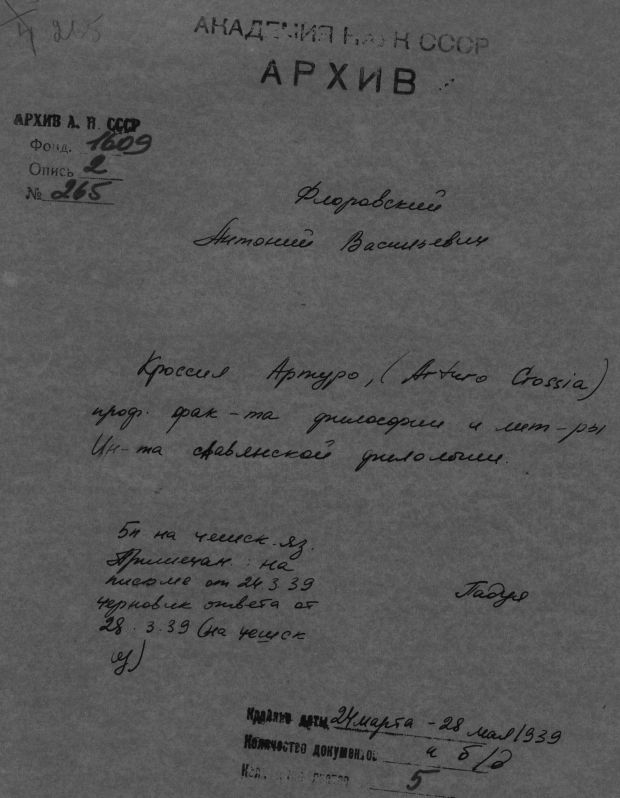 4 265
АКАДЕМИЯ НАУК СССР
АРХИВ
АРХИВ А. Н. СССР
Фонд. 1609
Опись 2
№ 265
Флоровский
Антоний Васильевич
Кроссия Артуро, (Arturo Crossia)
проф. фак-та философии и лит-ры
Ин-та славянской филологии.
5п на чешск. яз.
Примечан: на
письме от 24 3.39
черновик ответа от
28.3.39 (на чешск
яз)
Падуя
Крайние даты 24 марта - 28 мая 1939
Количество документов и б/д
Количество листов 5